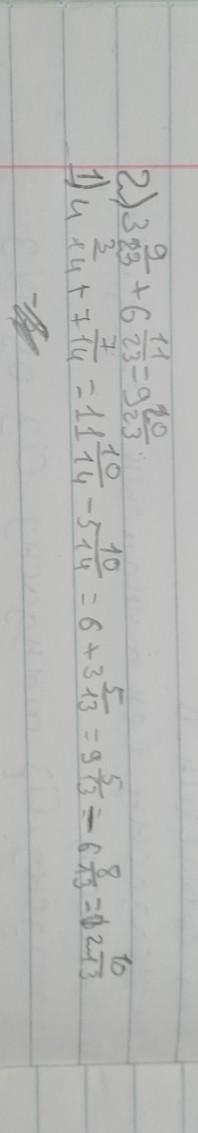 2) 3 9/23 + 6 11/23 = 9 20/23
1) 4 3/14 + 7 7/14 = 11 10/14 - 5 10/14 = 6 + 3 5/13 = 9 5/13 = - 6 8/13 = 2 10/13